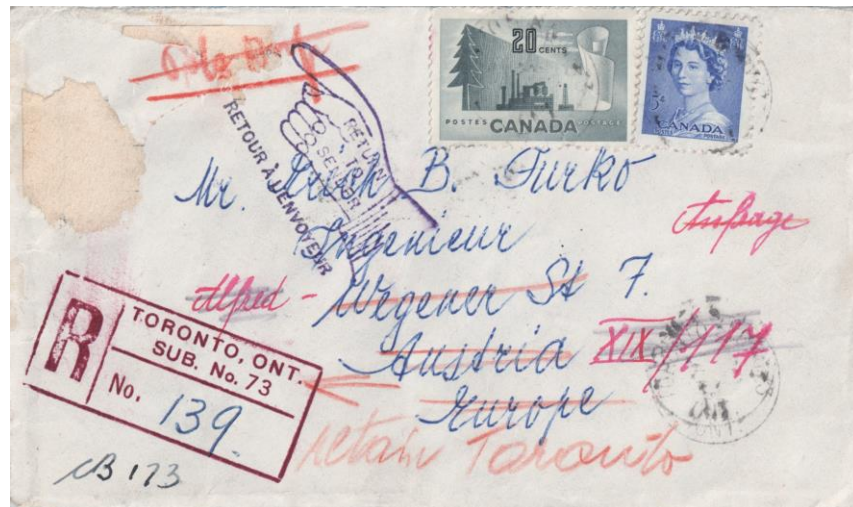 20 CENTS
POSTES CANADA POSTAGE
5
CANADA
RETURN
TO
SENDER
RETOUR À L'ENVOYEUR
Mr. B. Turko
Ingenieur
Alfred - Wegener St 7.
Austria XIX/117
Europe
R
TORONTO, ONT.
SUB. No. 73
No. 139
retain Toronto